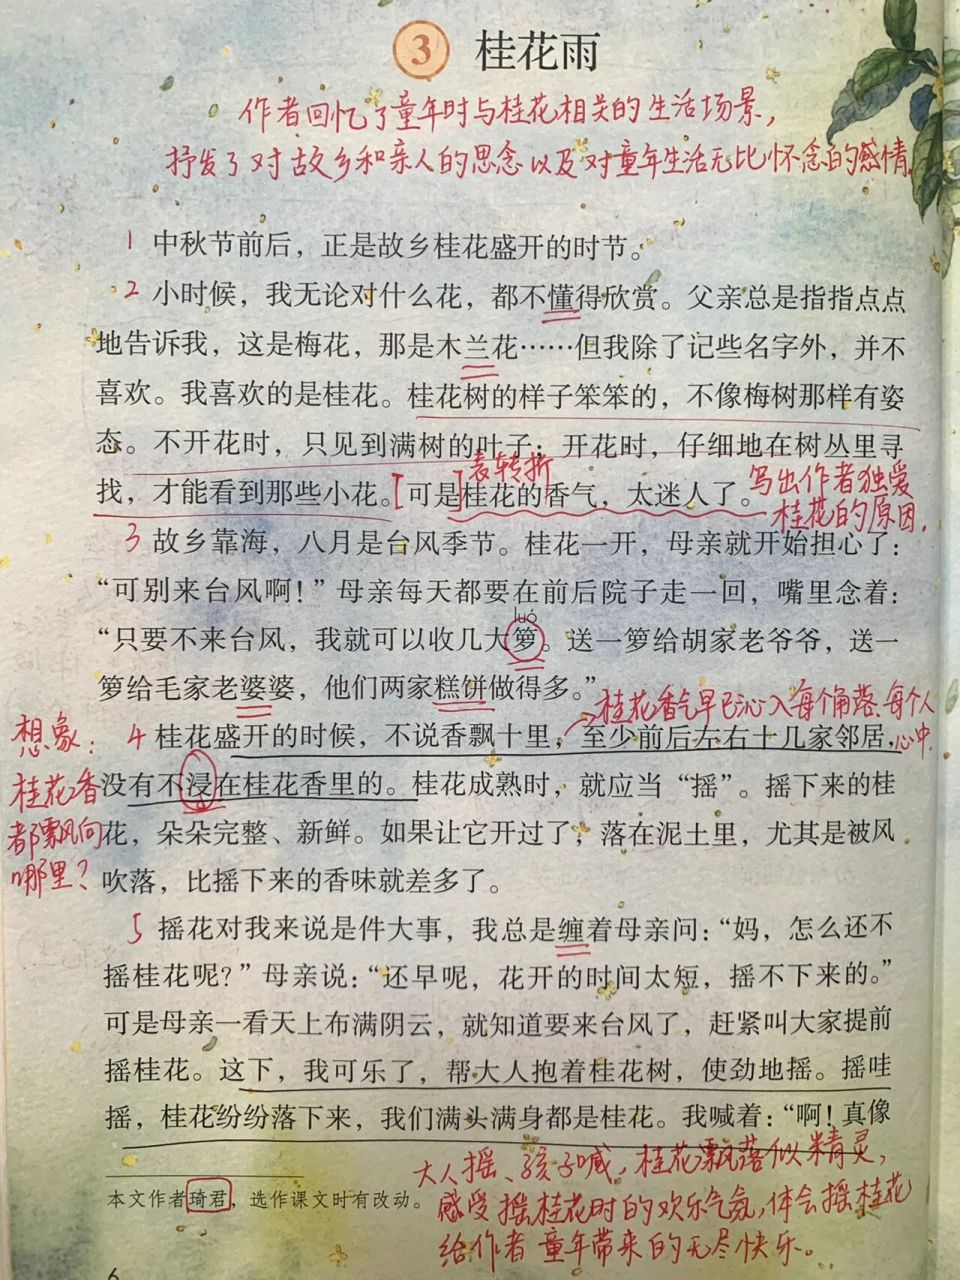 3 桂花雨
作者回忆了童年时与桂花相关的生活场景，
抒发了对故乡和亲人的思念以及对童年生活无比怀念的感情。
1 中秋节前后，正是故乡桂花盛开的时节。
2 小时候，我无论对什么花，都不懂得欣赏。父亲总是指指点点
地告诉我，这是梅花，那是木兰花……但我除了记些名字外，并不
喜欢。我喜欢的是桂花。桂花树的样子笨笨的，不像梅树那样有姿
态。不开花时，只见到满树的叶子；开花时，仔细地在树丛里寻
表转折
找，才能看到那些小花。[可是]桂花的香气，太迷人了。
写出作者独爱
桂花的原因。
3 故乡靠海，八月是台风季节。桂花一开，母亲就开始担心了：
“可别来台风啊！”母亲每天都要在前后院子走一回，嘴里念着：
luó
“只要不来台风，我就可以收几大箩。送一箩给胡家老爷爷，送一
箩给毛家老婆婆，他们两家糕饼做得多。”
桂花香气早已沁入每个角落、每个人
心中。
想象：
桂花香
都飘向
哪里？
4 桂花盛开的时候，不说香飘十里，至少前后左右十几家邻居，
没有不浸在桂花香里的。桂花成熟时，就应当“摇”。摇下来的桂
花，朵朵完整、新鲜。如果让它开过了，落在泥土里，尤其是被风
吹落，比摇下来的香味就差多了。
5 摇花对我来说是件大事，我总是缠着母亲问：“妈，怎么还不
摇桂花呢？”母亲说：“还早呢，花开的时间太短，摇不下来的。”
可是母亲一看天上布满阴云，就知道要来台风了，赶紧叫大家提前
摇桂花。这下，我可乐了，帮大人抱着桂花树，使劲地摇。摇哇
摇，桂花纷纷落下来，我们满头满身都是桂花。我喊着：“啊！真像
大人摇、孩子喊，桂花飘落似精灵，
感受摇桂花时的欢乐气氛，体会摇桂花
给作者童年带来的无尽快乐。
本文作者琦君，选作课文时有改动。
6